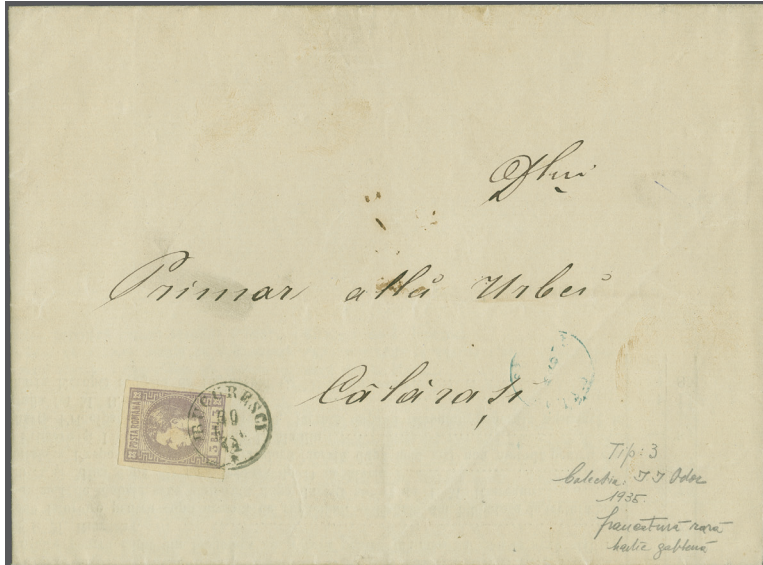 Dlui
Primar allŭ Urbei
Călărași
POSTA ROMANA
3 BANI
BUCURESCI
Tip: 3
Colectia: I I Odor
1935
francatură rară
hartie galbenă